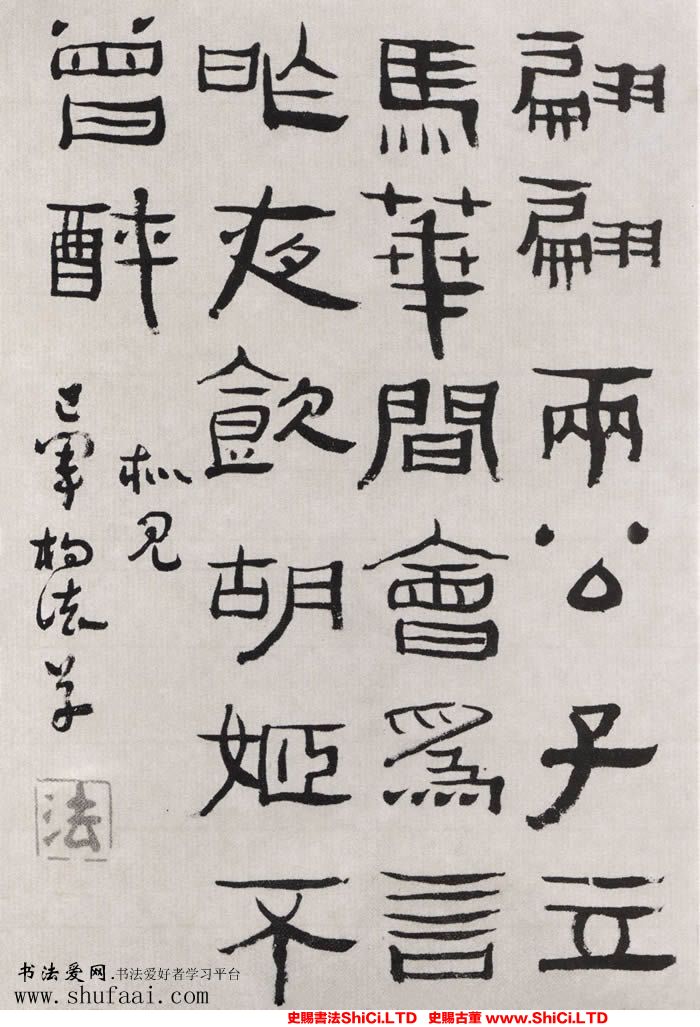 翩翩兩公子立
馬華間會為言
昨夜飲胡姬不
曾醉
法
书法爱网.书法爱好者学习平台
www.shufaai.com
史賜書法ShiCi.LTD 史賜古董 www.ShiCi.LTD